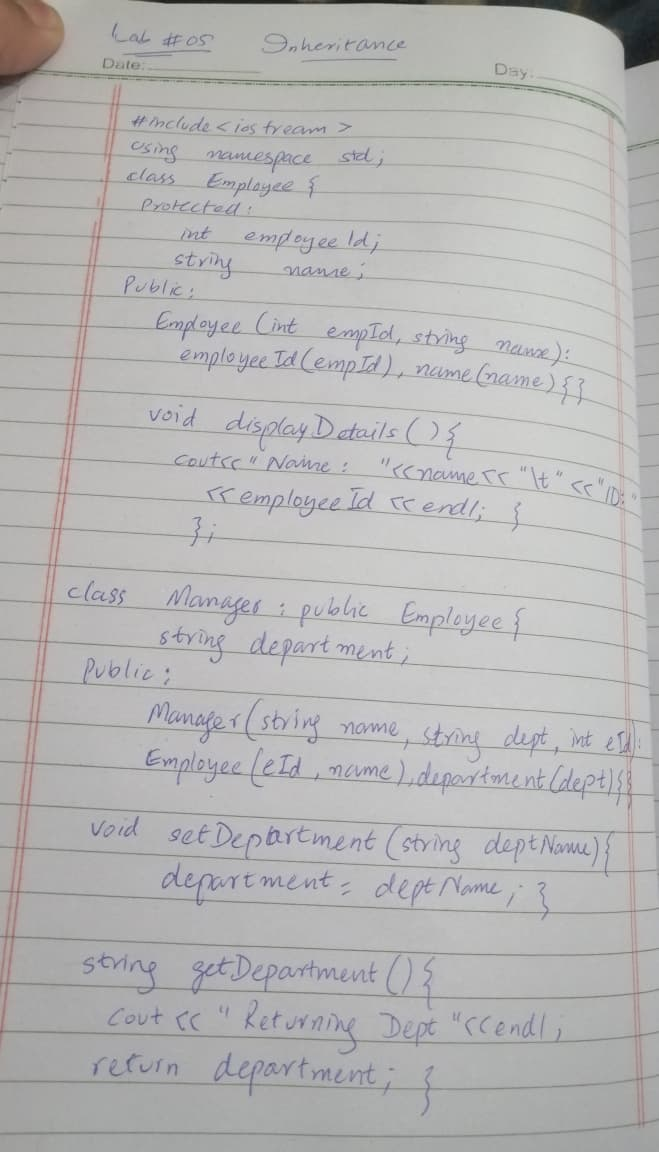 Lab #05 Inheritance
Date: Day:
#include<iostream>
using namespace std;
class Employee {
Protected:
int employeeId;
string name;
Public:
Employee (int empId, string name):
employeeId(empId), name(name){}}
void displayDetails(){
cout<<"Name: "<<name<< "\t" <<"ID:"
<<employeeId <<endl; }
};
class Manager : public Employee {
string department;
Public:
Manager(string name, string dept, int eId):
Employee(eId, name), department(dept){}
void setDepartment (string deptName){
department= deptName; }
string getDepartment (){
cout << "Returning Dept"<<endl;
return department; }